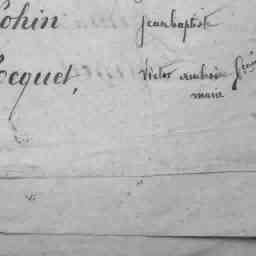 Cohin jean baptiste
Cocquet, Victor ambroise
marie